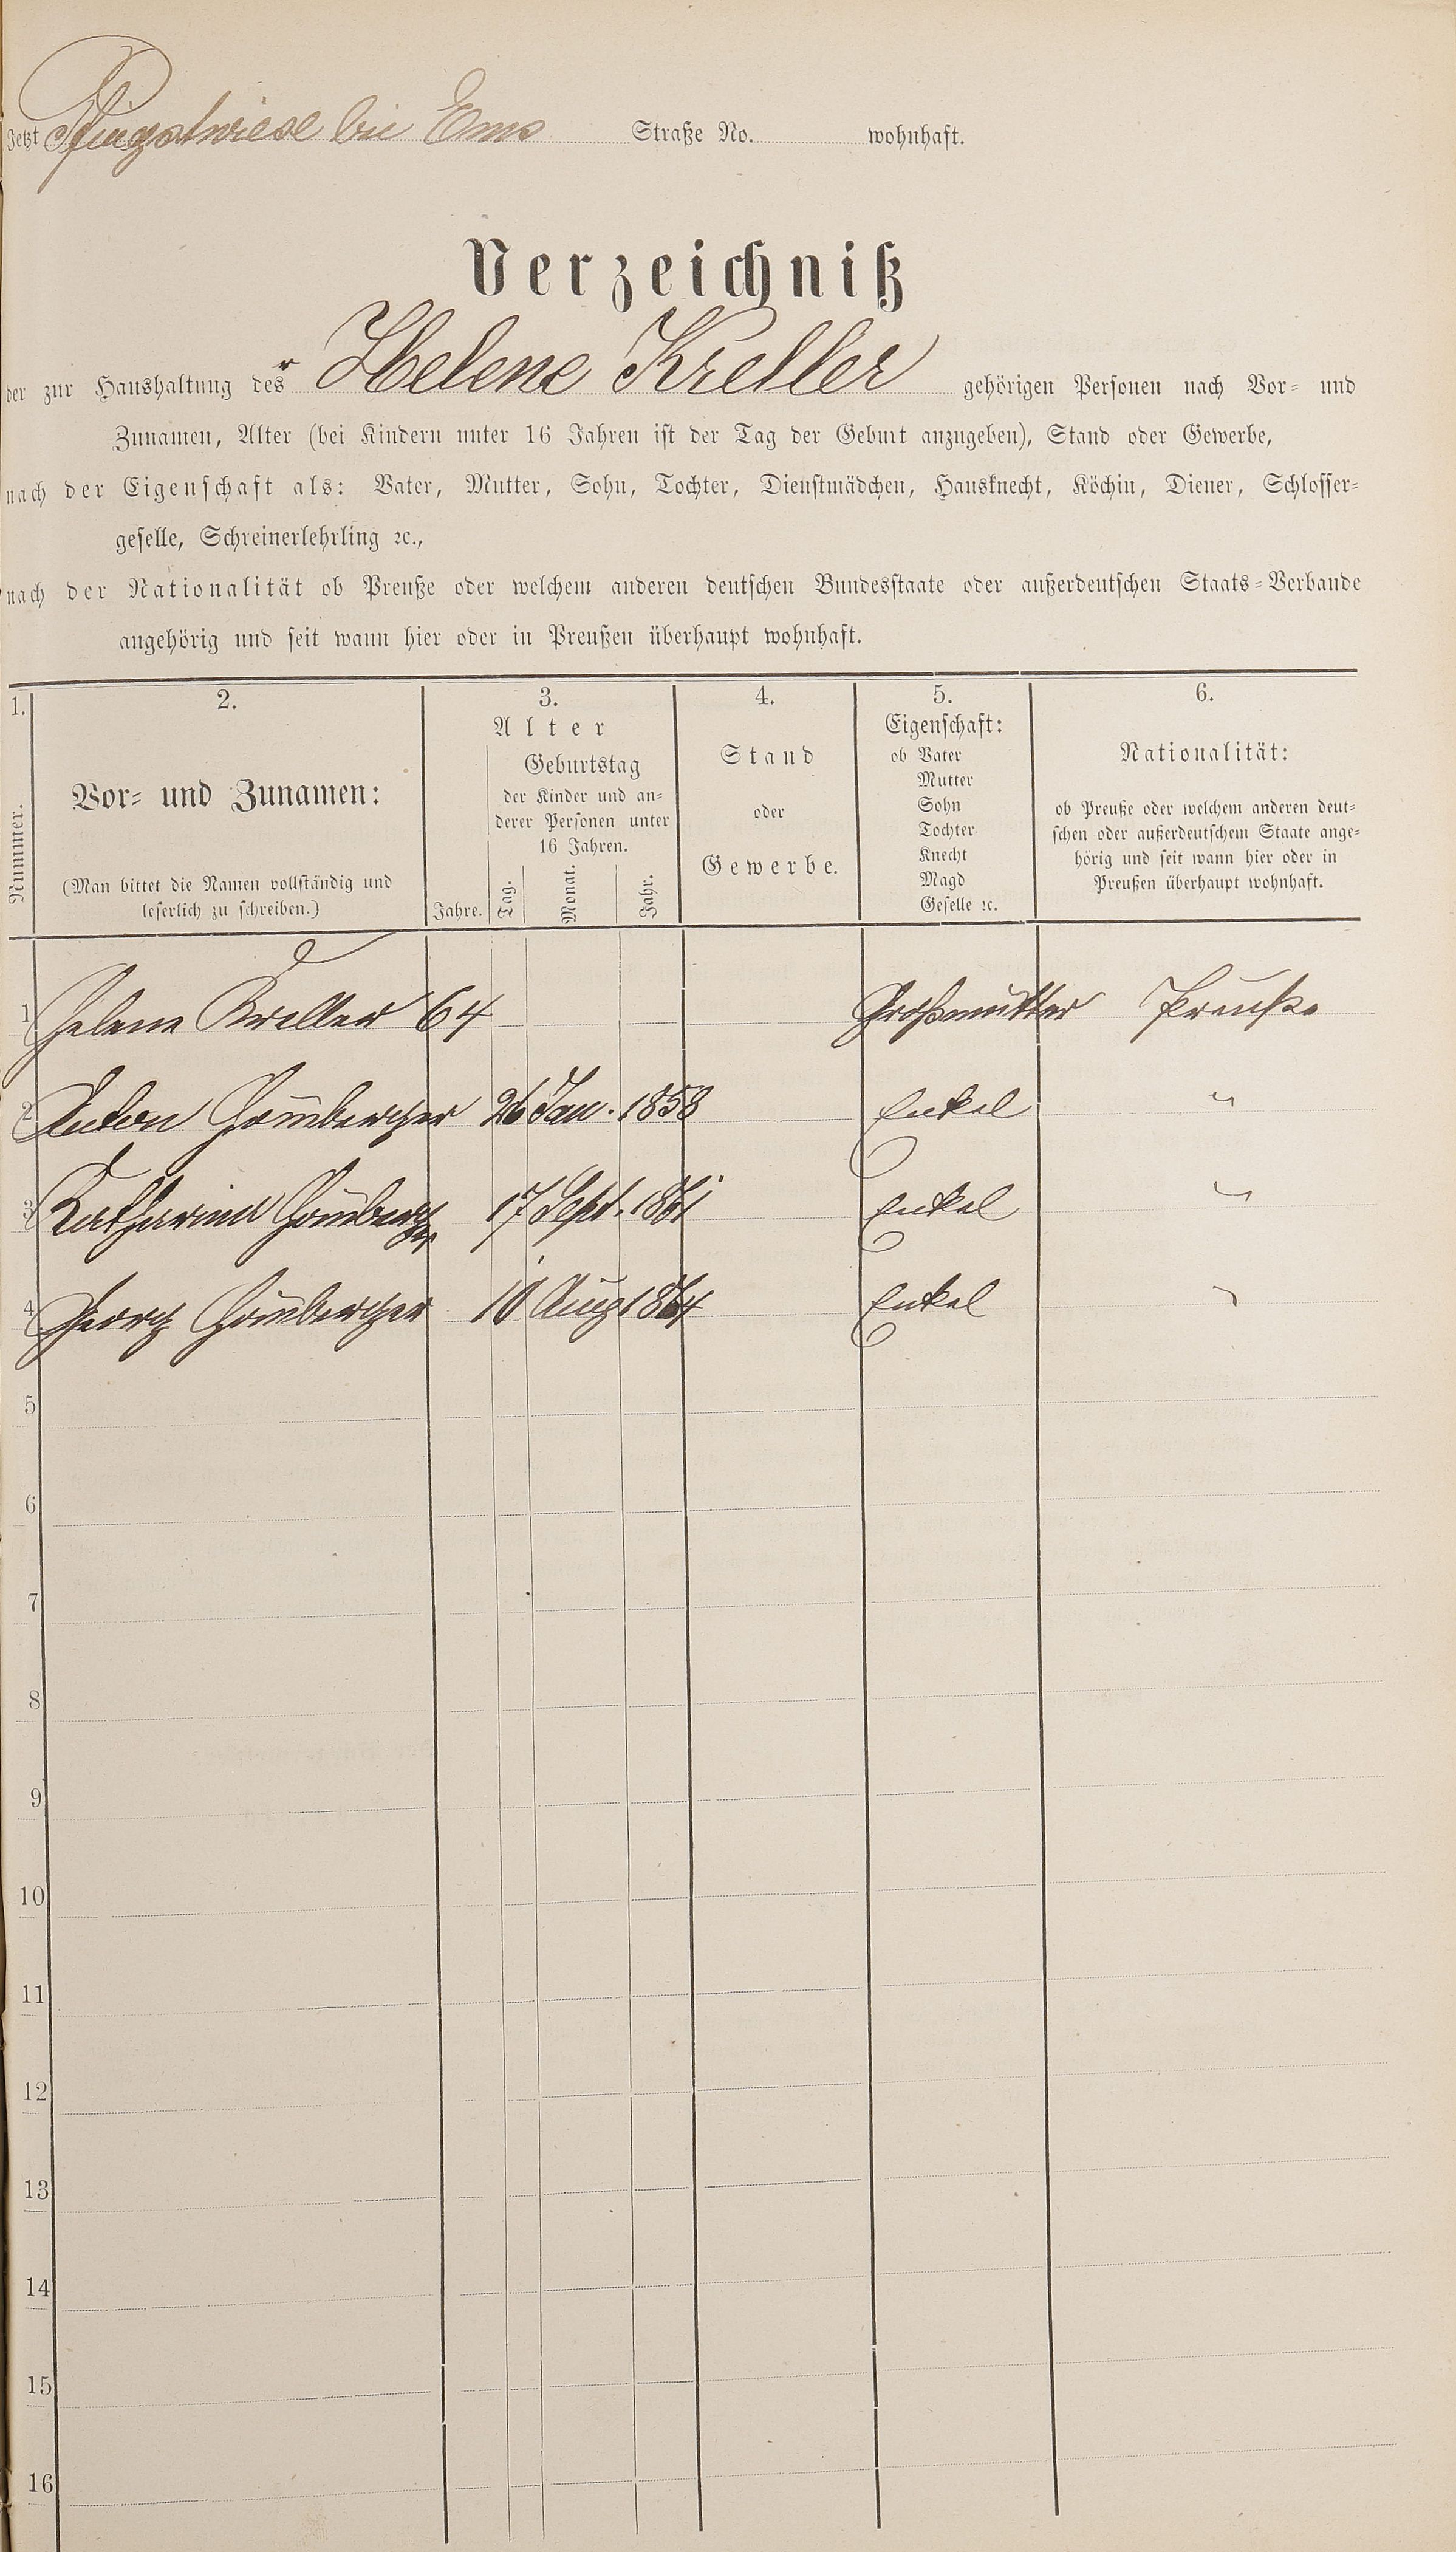 Jetzt Pfingstwiese bei Ems Straße No. wohnhaft.
Verzeichniß
der zur Haushaltung des r Helene Kreller gehörigen Personen nach Vor- und
Zunamen, Alter (bei Kindern unter 16 Jahren ist der Tag der Geburt anzugeben), Stand oder Gewerbe,
nach der Eigenschaft als: Vater, Mutter, Sohn, Tochter, Dienstmädchen, Hausknecht, Köchin, Diener, Schlosser-
geselle, Schreinerlehrling ꝛc.,
nach der Nationalität ob Preuße oder welchem anderen deutschen Bundesstaate oder außerdeutschen Staats-Verbande
angehörig und seit wann hier oder in Preußen überhaupt wohnhaft.
1.
Nummer.
2.
Vor- und Zunamen:
(Man bittet die Namen vollständig und
leserlich zu schreiben.)
3.
Alter
Jahre.
Geburtstag
der Kinder und an-
derer Personen unter
16 Jahren.
Tag. Monat. Jahr.
4.
Stand
oder
Gewerbe.
5.
Eigenschaft:
ob Vater
Mutter
Sohn
Tochter
Knecht
Magd
Geselle ꝛc.
6.
Nationalität:
ob Preuße oder welchem anderen deut-
schen oder außerdeutschem Staate ange-
hörig und seit wann hier oder in
Preußen überhaupt wohnhaft.
1 Helene Kreller 64 Großmutter Preuße
2 Anton Homberger 26 Jan. 1858 Enkel "
3 Katharina Homberger 17 Sept. 1861 Enkel "
4 Georg Homberger 10 Aug 1864 Enkel "
5
6
7
8
9
10
11
12
13
14
15
16